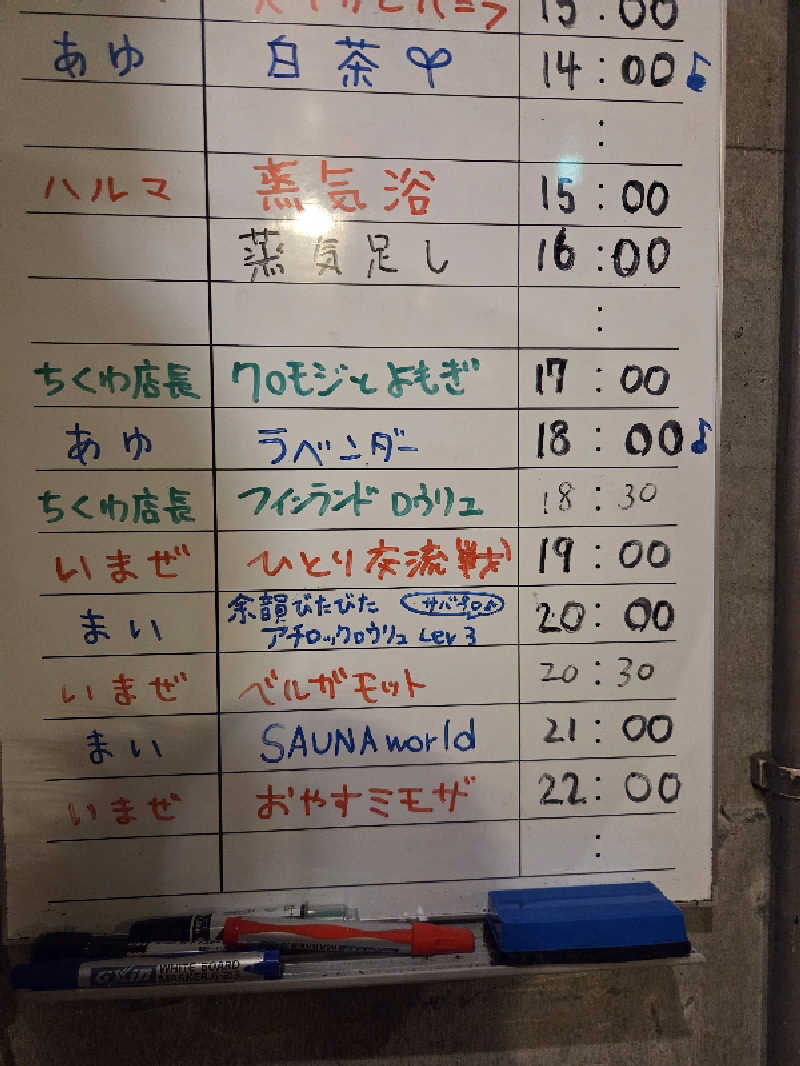 13:00
あゆ 白茶 14:00♪
:
ハルマ 蒸気浴 15:00
蒸気足し 16:00
:
ちくわ店長 クロモジとよもぎ 17:00
あゆ ラベンダー 18:00♪
ちくわ店長 フィンランドロウリュ 18:30
いまぜ ひとり交流(戦) 19:00
まい 余韻びたびた サバチロ♪ 20:00
アチロックロウリュ Lev 3
いまぜ ベルガモット 20:30
まい SAUNA world 21:00
いまぜ おやすミモザ 22:00
:
WHITE BOARD
MARKER